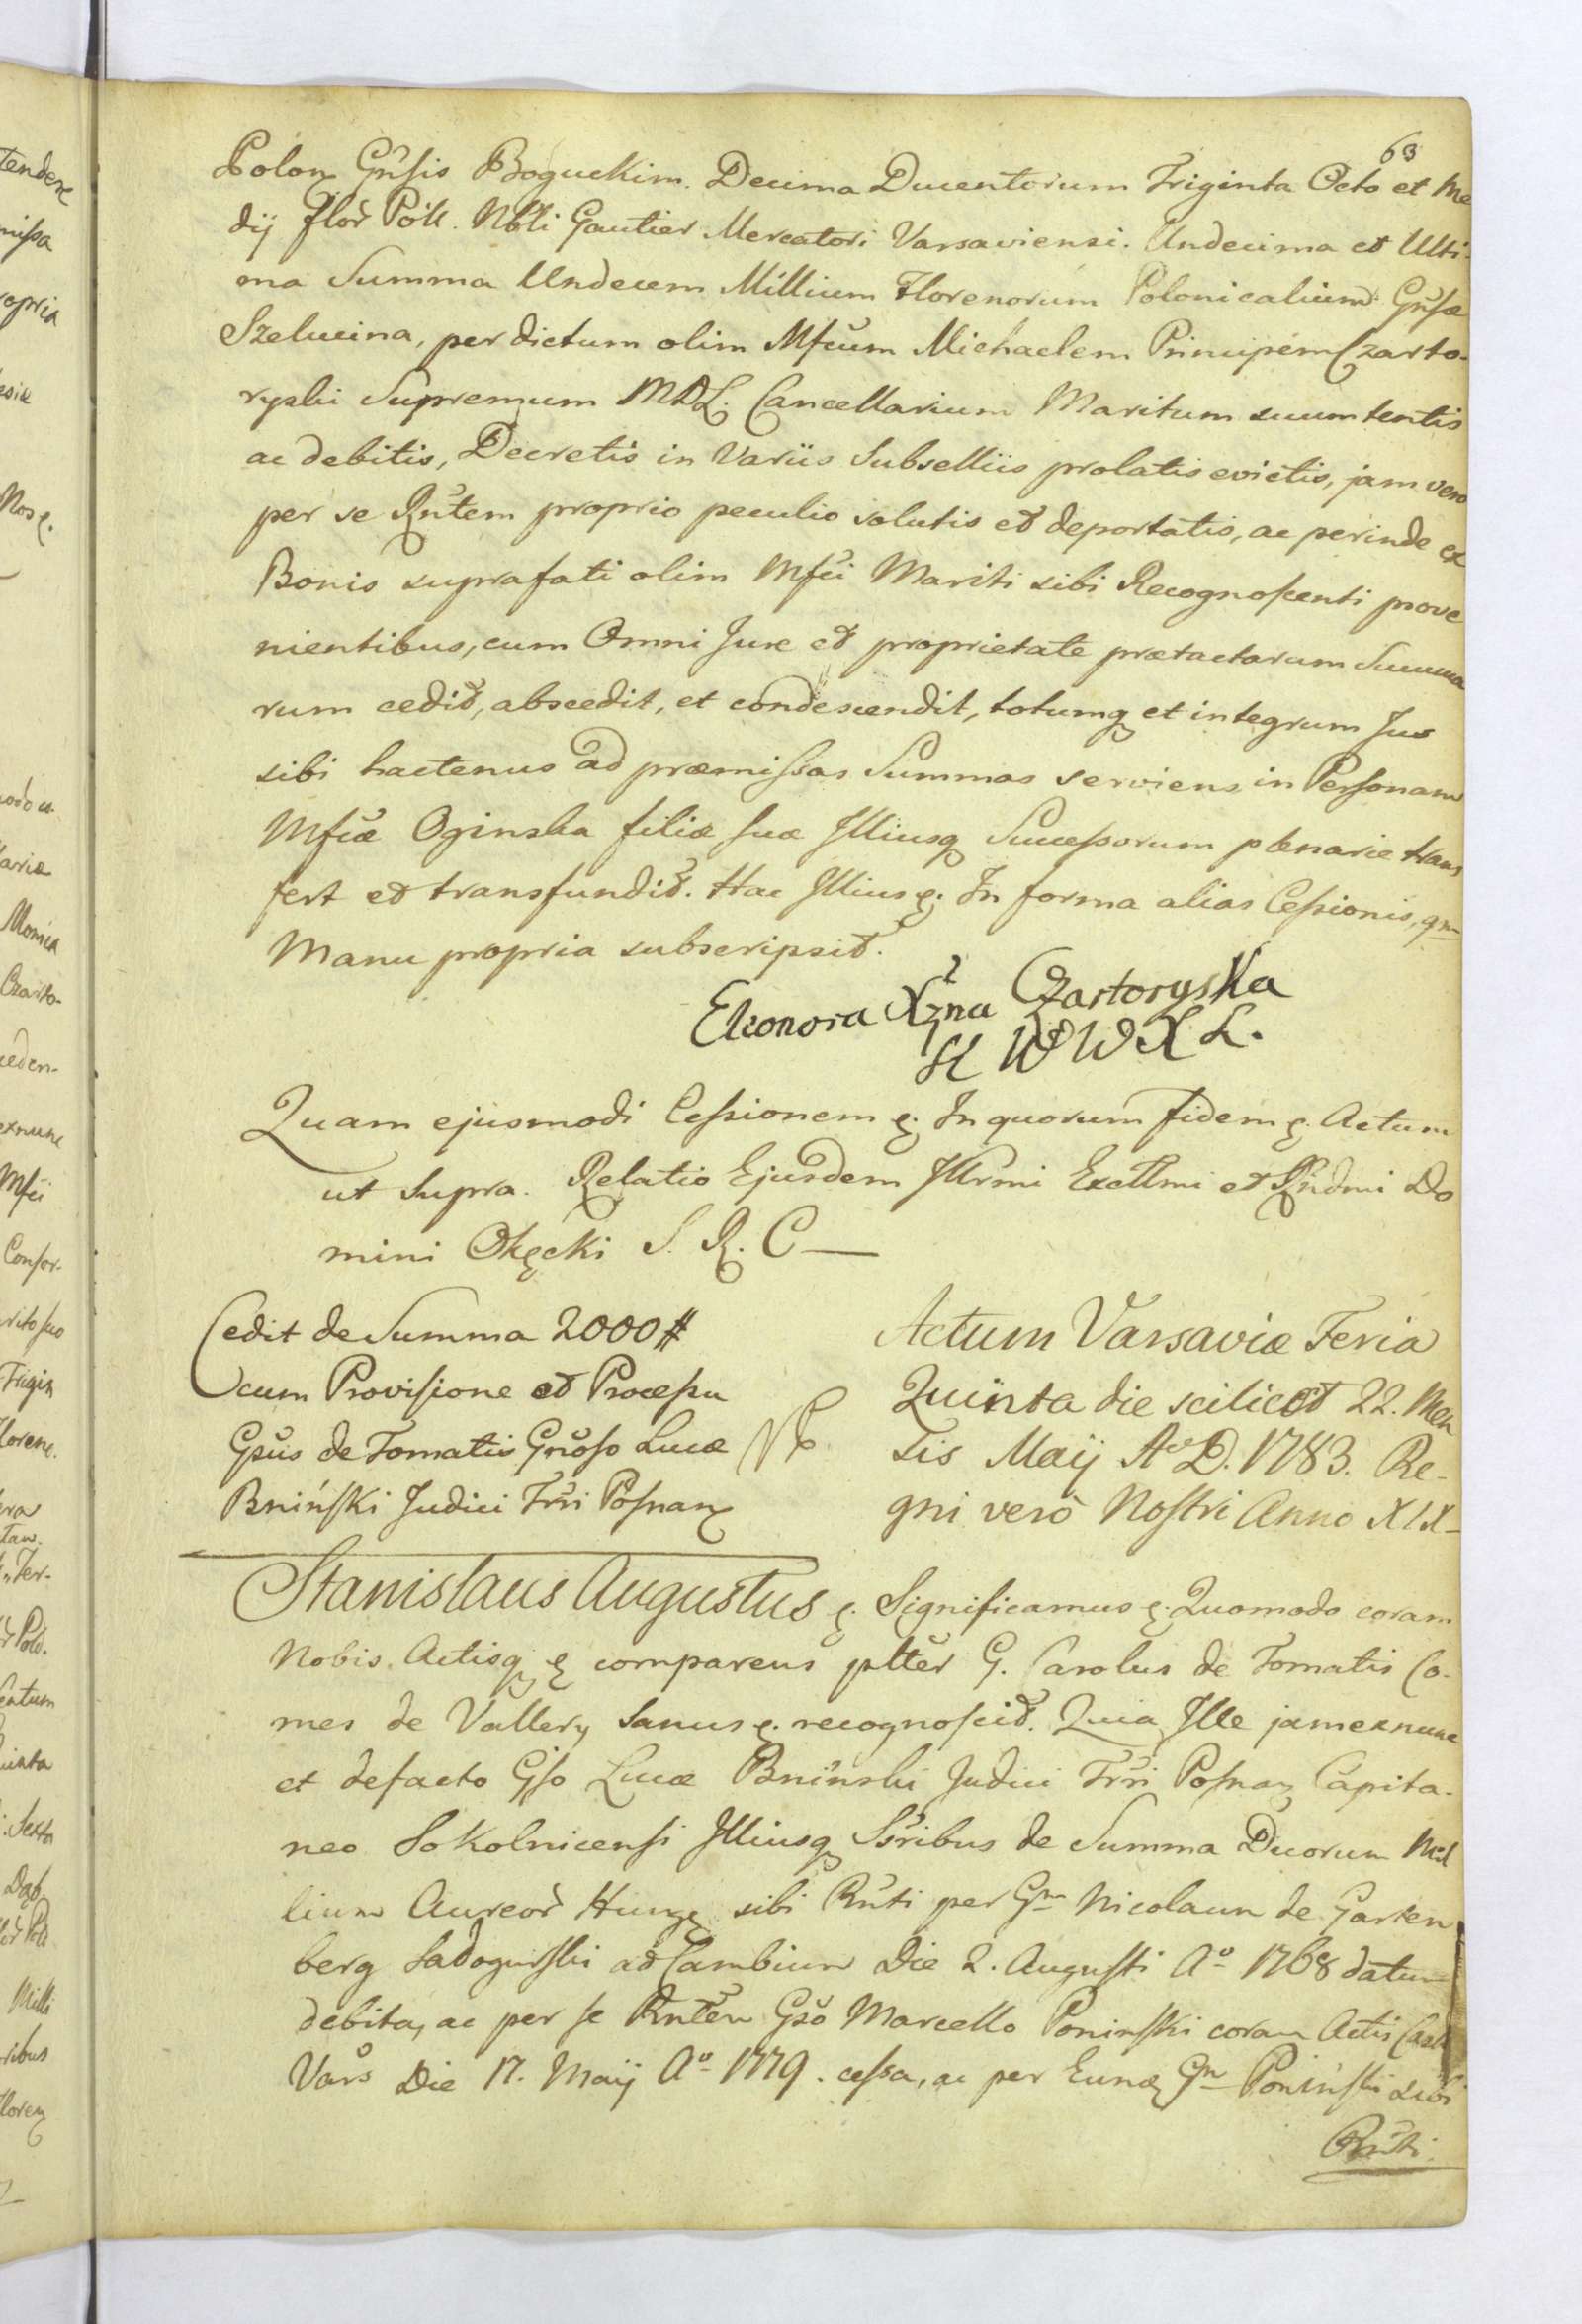 63
Polon Gnsis Boguckim. Decima Ducentorum Triginta Octo et Me
dij flor Poll. Nbli Gautier Mercatori Varsaviensi. Undecima et Ulti-
ma Summa Undecem Millium Florenorum Polonicalium Gnsæ
Szelucina, per dictum olim Mfcum Michaelem Principem Czarto-
ryski Supremum MDL. Cancellarium Maritum suum tentis
ac debitis, Decretis in Variis Subselliis prolatis evictis, jam vero
per se Rntem proprio peculio solutis et deportatis, ac perinde ex
Bonis suprafati olim Mfci Mariti sibi Recognoscenti prove
nientibus, cum Omni Jure et proprietate prætactarum Summa
rum cedit, abscedit, et condescendit, totumq et integrum Jus
sibi hactenus ad præmissas Summas serviens in Personam
Mfcæ Oginska filiæ suæ Illiusq Successorum plenarie trans
fert et transfundit. Hac Illius ę. In forma alias Cessionis, qm
Manu propria subscripsit.
Eleonora Xżna Czartoryska
K W W X L.
Quam ejusmodi Cessionem ę. In quorum fidem ę. Actum
ut Supra. Relatio Ejusdem Illrmi Excllmi et Rndmi Do
mini Okęcki S. R. C—
Cedit de Summa 2000 #
cum Provisione et Processu
Gsus de Tomatis Gnoso Lucæ
Bniński Judici Trri Posnan
Actum Varsaviæ Feria
Quinta die scilicet 22. Men
sis Maij Ao D. 1783. Re-
gni vero Nostri Anno XIX—
Stanislaus Augustus ę. Significamus ę. Quomodo coram
Nobis Actisq ę comparens pltter G. Carolus de Tomatis Co-
mes de Vallery Sanus ę. recognoscit. Quia Ille jam exnunc
et defacto Gso Lucæ Bninski Judici Trri Posnan Capita-
neo Sokolnicensi Illiusq Ssribus de Summa Duorum Mil
lium Aureor Hung sibi Rnti per Gm Nicolaum de Garten
berg Sadogurski ad Cambium Die 2. Augusti Ao 1768 datum
debita, ac per se Rntem Gso Marcello Poninski coram Actis Cast
Vars Die 17. Maij Ao 1779. cessa, ac per Eund Gm Poniński sibi
Rnti.